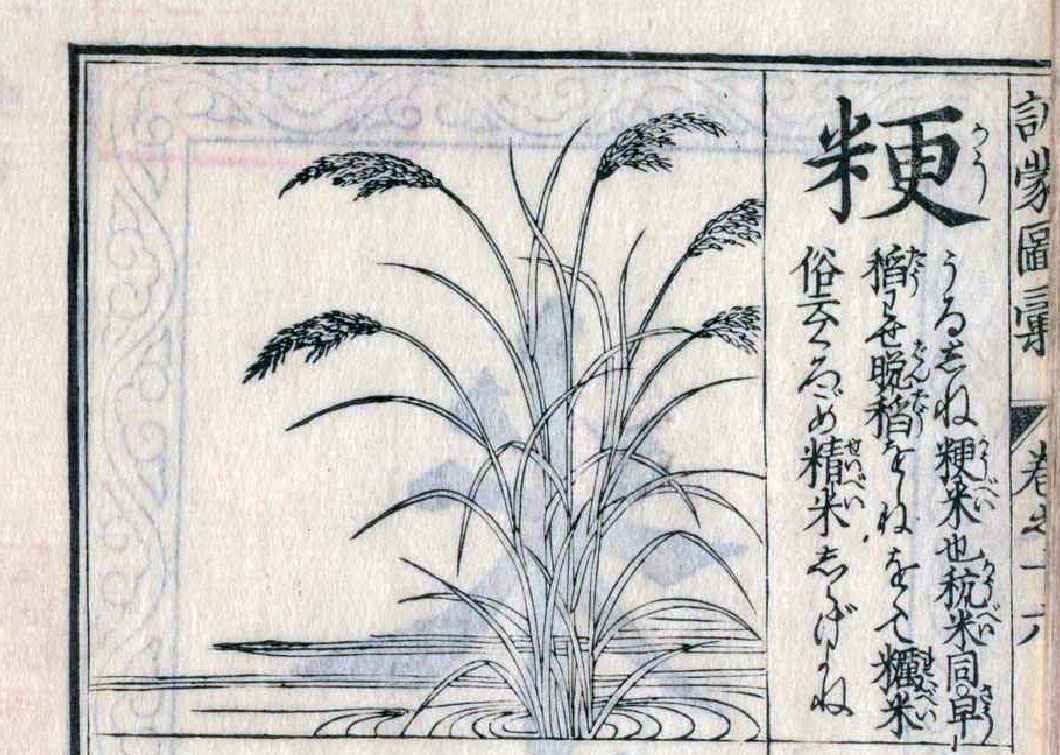 訓蒙圖彙
卷之十六
粳
かう
うるしね粳米也秔米同早
かうべい
かうべい
さう
稻わせ晩稻をしねをくて糯米
たう
ばんたう
俗云くろごめ精米しらげよね
せいべい